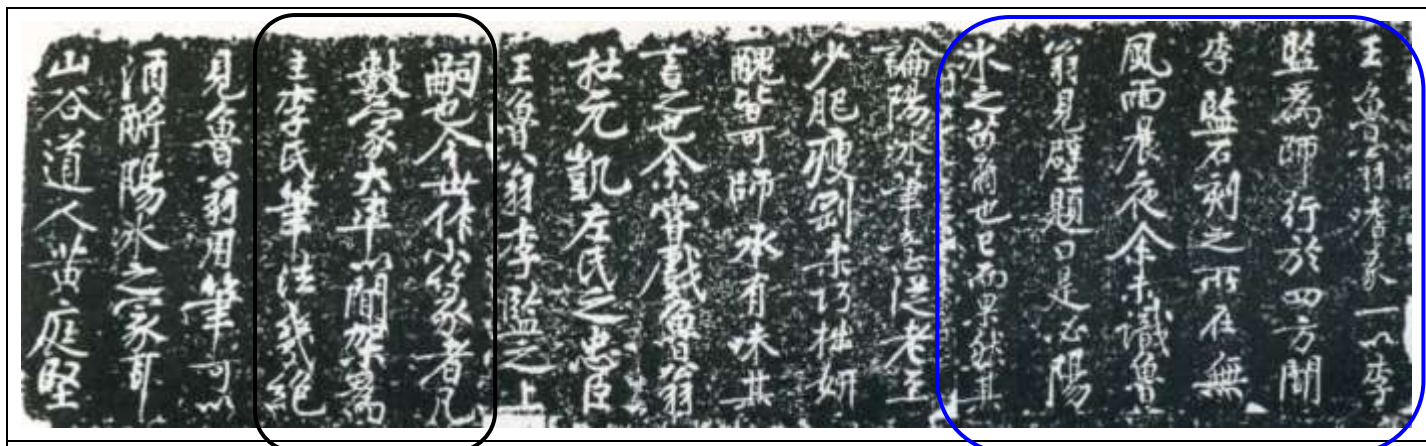 王魯翁嗜篆一以李
監為師行於四方聞
李監石刻之所在無
風雨晨夜余未識魯
翁見壁題曰是必陽
冰之苗裔也已而果然其
論陽冰筆意從老至
少肥瘦剛柔巧拙妍
醜皆可師承有味其
言之也余嘗戲魯翁
杜元凱左氏之忠臣
王魯翁李監之上
嗣也今世作小篆者凡
數家大率以間架為
主李氏筆法幾絕
見魯翁用筆可以
酒酹陽冰之冢耳
山谷道人黃庭堅